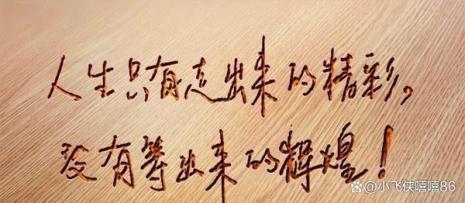 人生只有走出来的精彩,
没有等出来的辉煌!
@小飞侠嘻嘻86